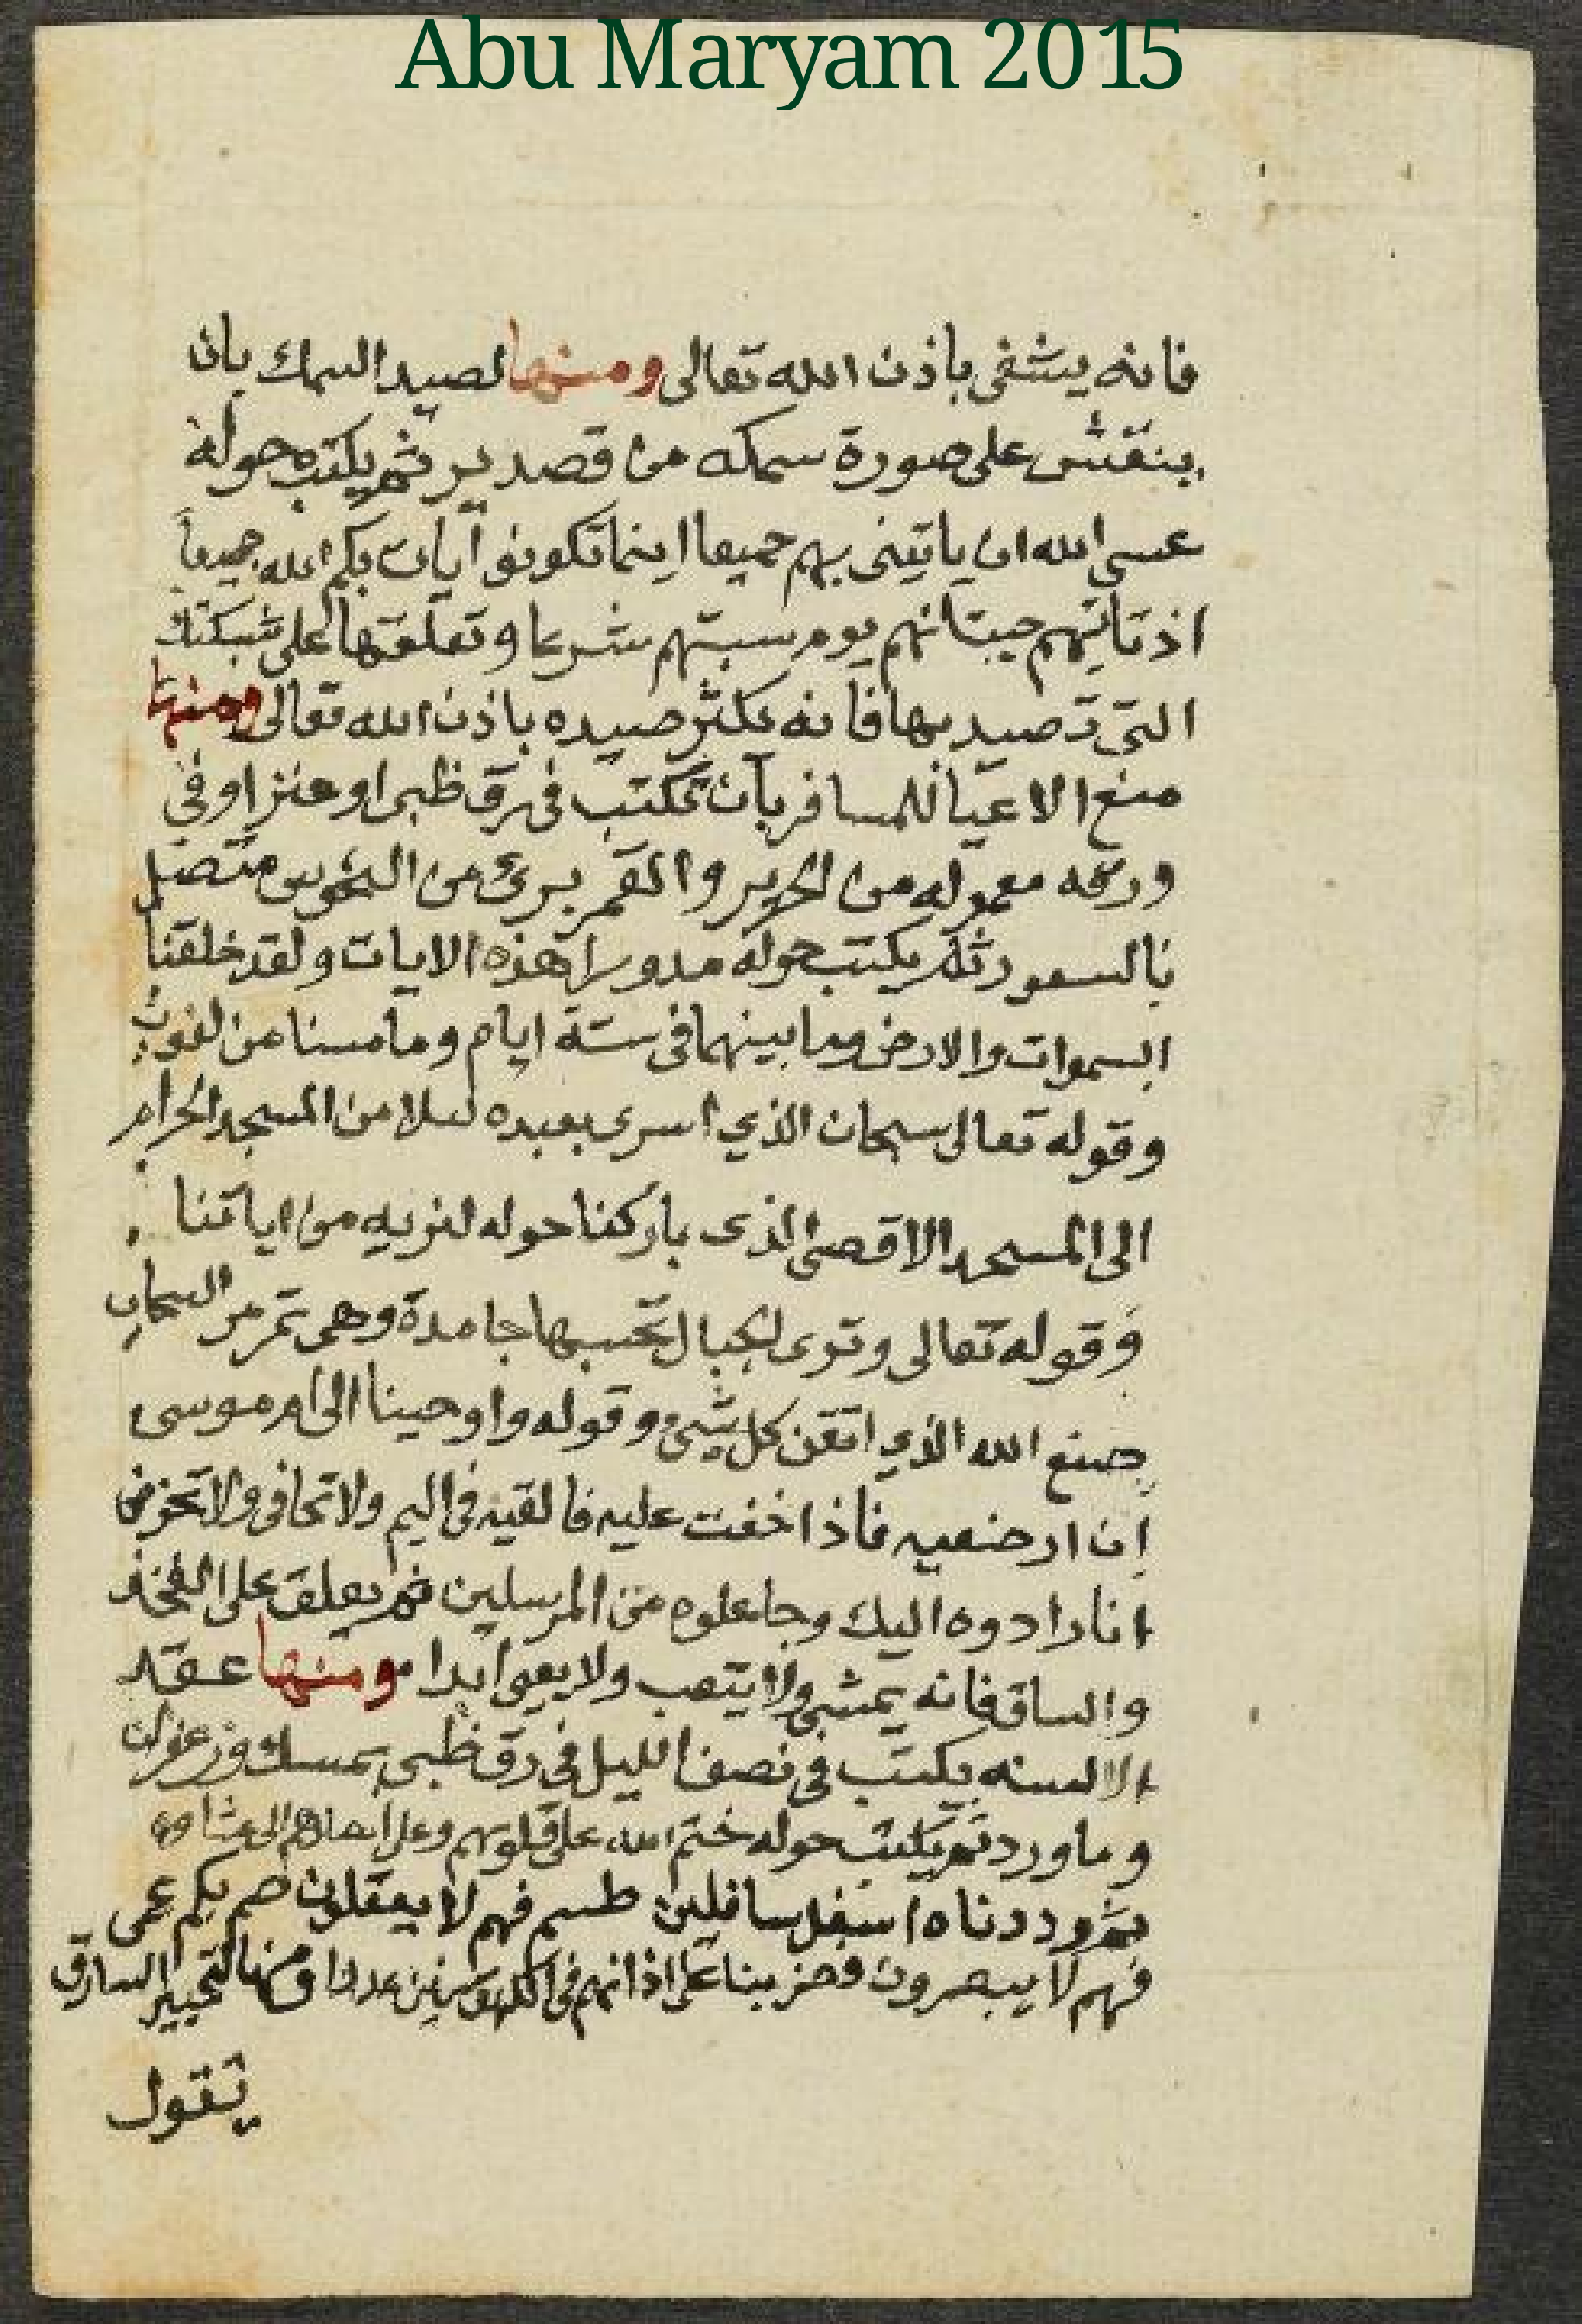 Abu Maryam 2015
فانه يشفى باذن الله تعالى ومنها لصيد السمك بان
ينقش على صورة سمكه من قصدير ثم يكتب حوله
عسى الله ان ياتينى بهم جميعا اينما تكونو ايات بكم الله جميعاً
اذ تاتيهم حيتانهم يوم سبتهم شرعا وتعلقها على شبكتك
التى تصيد بها فانه يكثر صيده باذن الله تعالى ومنها
منع الاعيا للمسافر بان تكتب فى رق ظبى او عنز او في
ورقه معموله من الحرير والقمر برئ من النحوس متصل
بالسعود ثم يكتب حوله مدورا هذه الايات ولقد خلقنا
السموات والارض وما بينهما فى ستة ايام وما مسنا من لغوب
وقوله تعالى سبحان الذي اسرى بعبده ليلا من المسجد الحرام
الى المسجد الاقصى الذى باركنا حوله لنريه من اياتنا
وقوله تعالى وترى الجبال تحسبها جامدة وهى تمر مر السحاب
صنع الله الذي اتقن كل شئ وقوله واوحينا الى ام موسى
ان ارضعيه فاذا خفت عليه فالقيه فى اليم ولا تخافى ولا تحزنى
انا رادوه اليك وجاعلوه من المرسلين ثم يعلق على الفخذ
والساق فانه يمشى ولا يتعب ولا يعى ابدا ومنها عقد
الالسنه يكتب فى نصف الليل فى رق ظبى بمسك وزعفران
وماورد ثم يكتب حوله ختم الله على قلوبهم وعلى ابصارهم الى غشاوه
ثم رددناه اسفل سافلين طسم فهم لا يعقلون صم بكم عمى
فهم لا يبصرون فضربنا على اذانهم فى الكهف سنين عددا ومنها لتحيير السارق
تقول